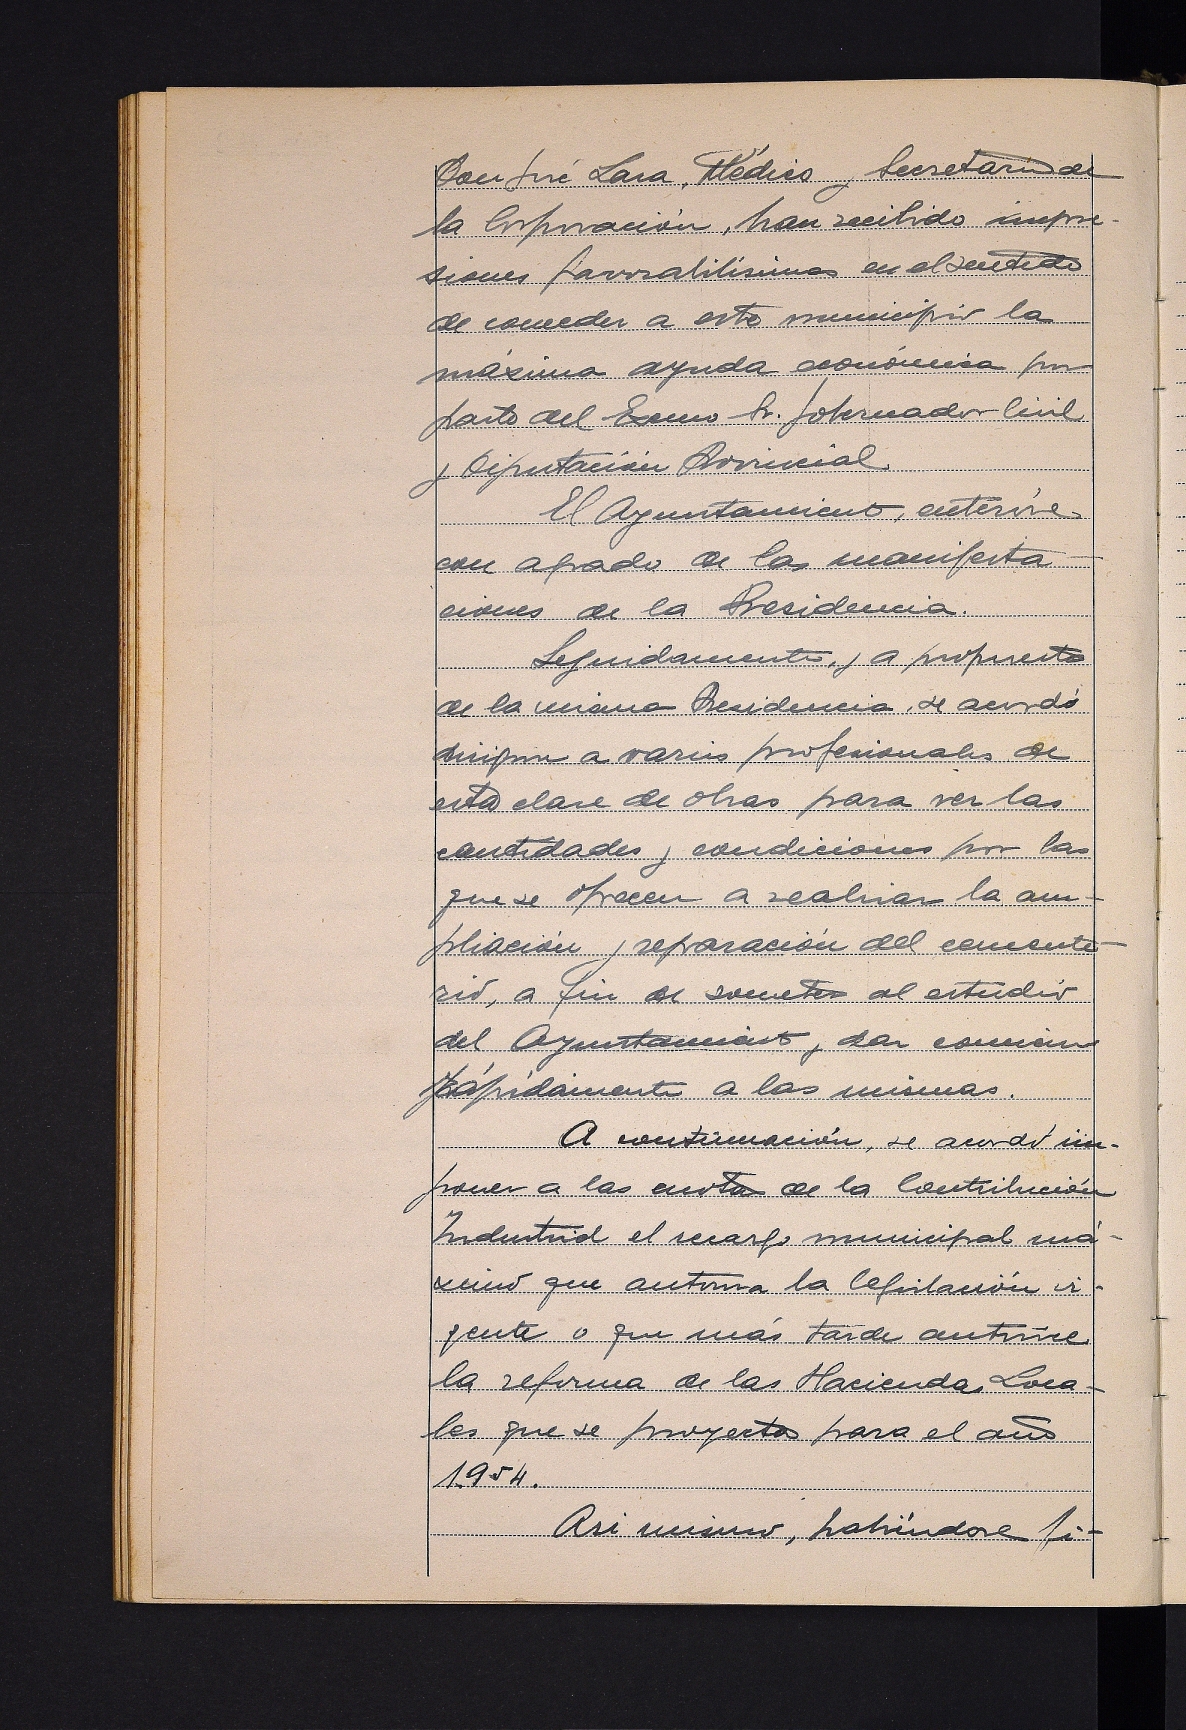 Don José Lara, Médico y Secretario de
la Corporación, han recibido impre-
siones favorabilísimas en el sentido
de conceder a este municipio la
máxima ayuda económica por
parte del Excmo Sr. Gobernador Civil
y Diputación Provincial.
El Ayuntamiento, enteróse
con agrado de las manifesta-
ciones de la Presidencia.
Seguidamente, y a propuesta
de la misma Presidencia, se acordó
a varios profesionales de
esta clase de obras para ver las
cantidades y condiciones por las
que se ofrecen a realizar la am-
pliación y reparación del cemente-
rio, a fin de someter al estudio
del Ayuntamiento y dar comienzo
rápidamente a las mismas.
A continuación, se acordó im-
poner a las cuota de la Contribución
Industrial el recargo municipal má-
ximo que autoriza la legislación vi-
gente o que más tarde autorice
la reforma de las Haciendas Loca-
les que se proyecta para el año
1954.
Asi mismo, habiéndose fi-